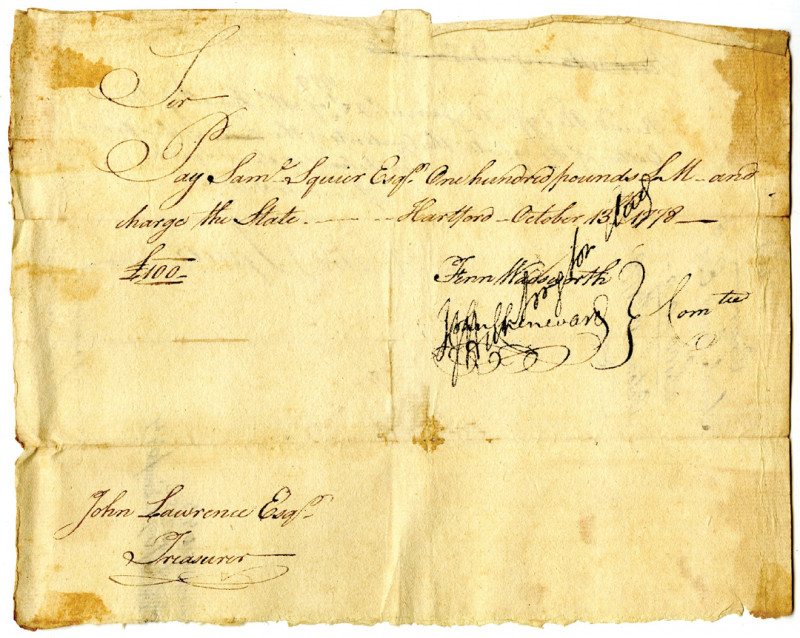 Sir
Pay Sam.l Squier Esq.r One hundred pounds L M - and
charge the State - - - Hartford - October 13th 1778 -
£100-
Fenn Wadsworth
John Chenevard } Com tee
John Lawrence Esq.r
Treasurer